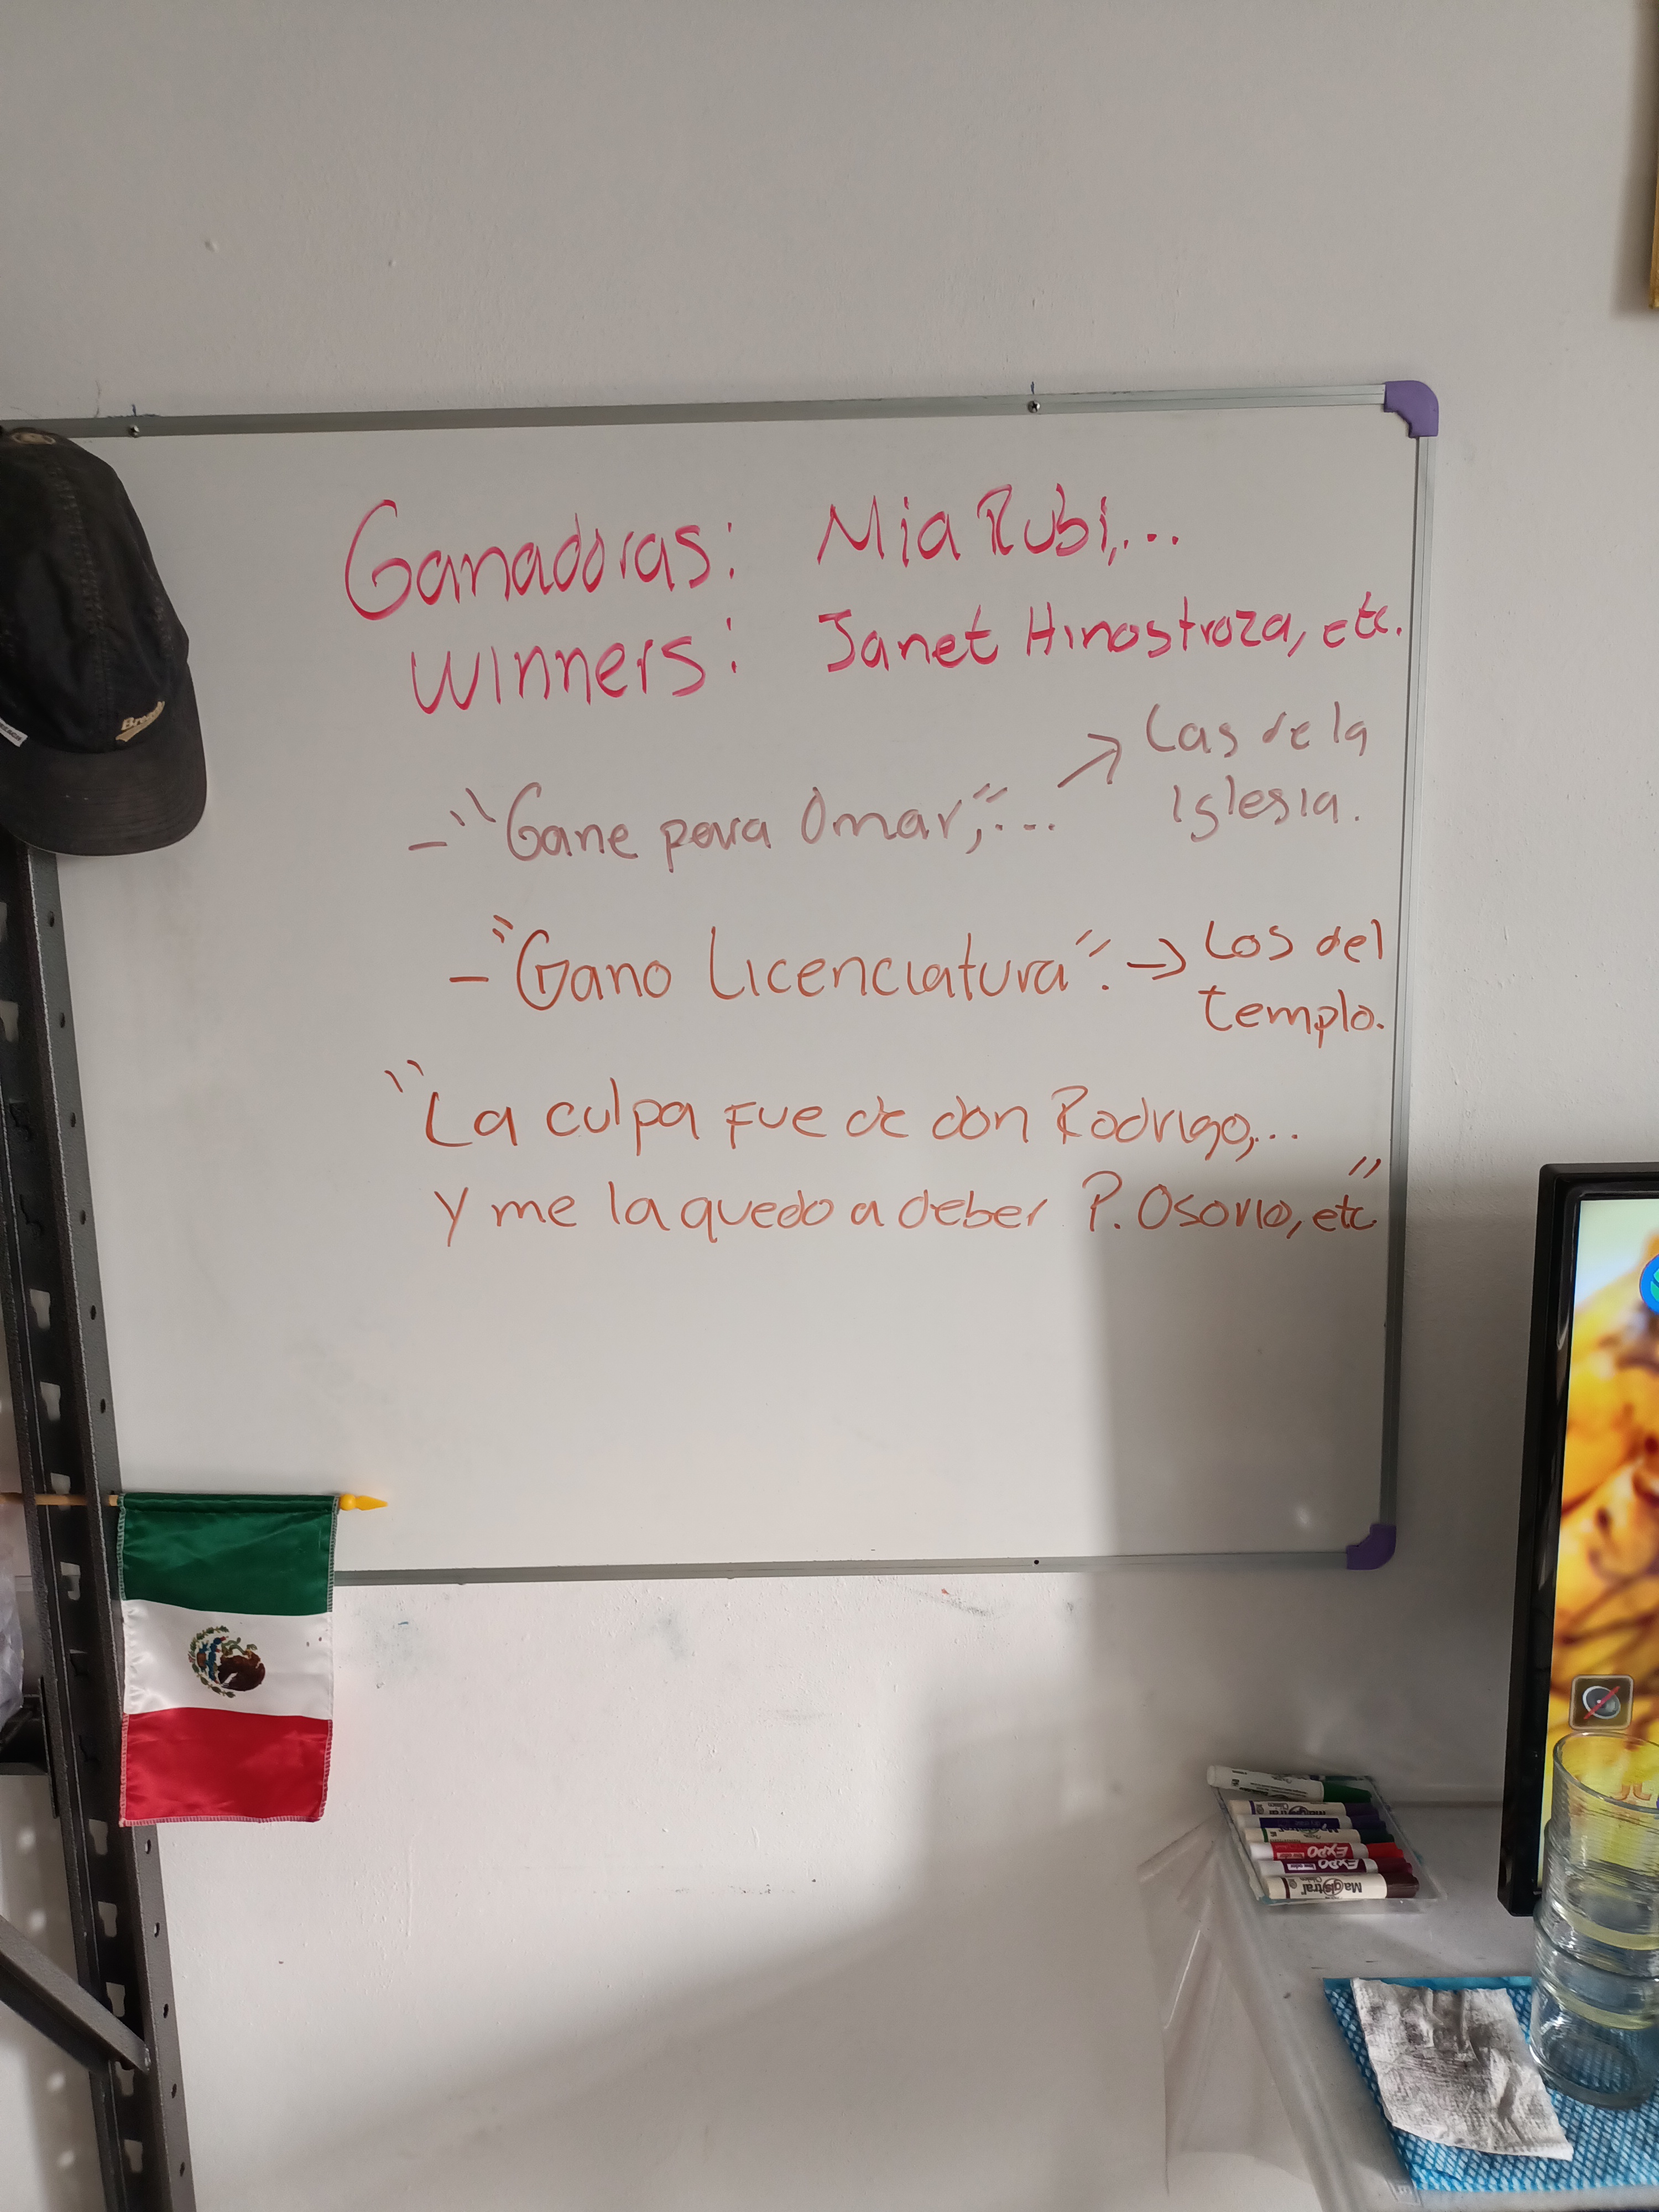 Ganadoras: Mia Rubi,...
Winners: Janet Hinostroza, etc.
-"Gane para Omar",... → Las de la
iglesia.
-"Gano Licenciatura". → Los del
templo.
"La culpa fue de don Rodrigo,...
y me la quedo a deber P. Osorio, etc"
EXPO
EXPO
Magistral